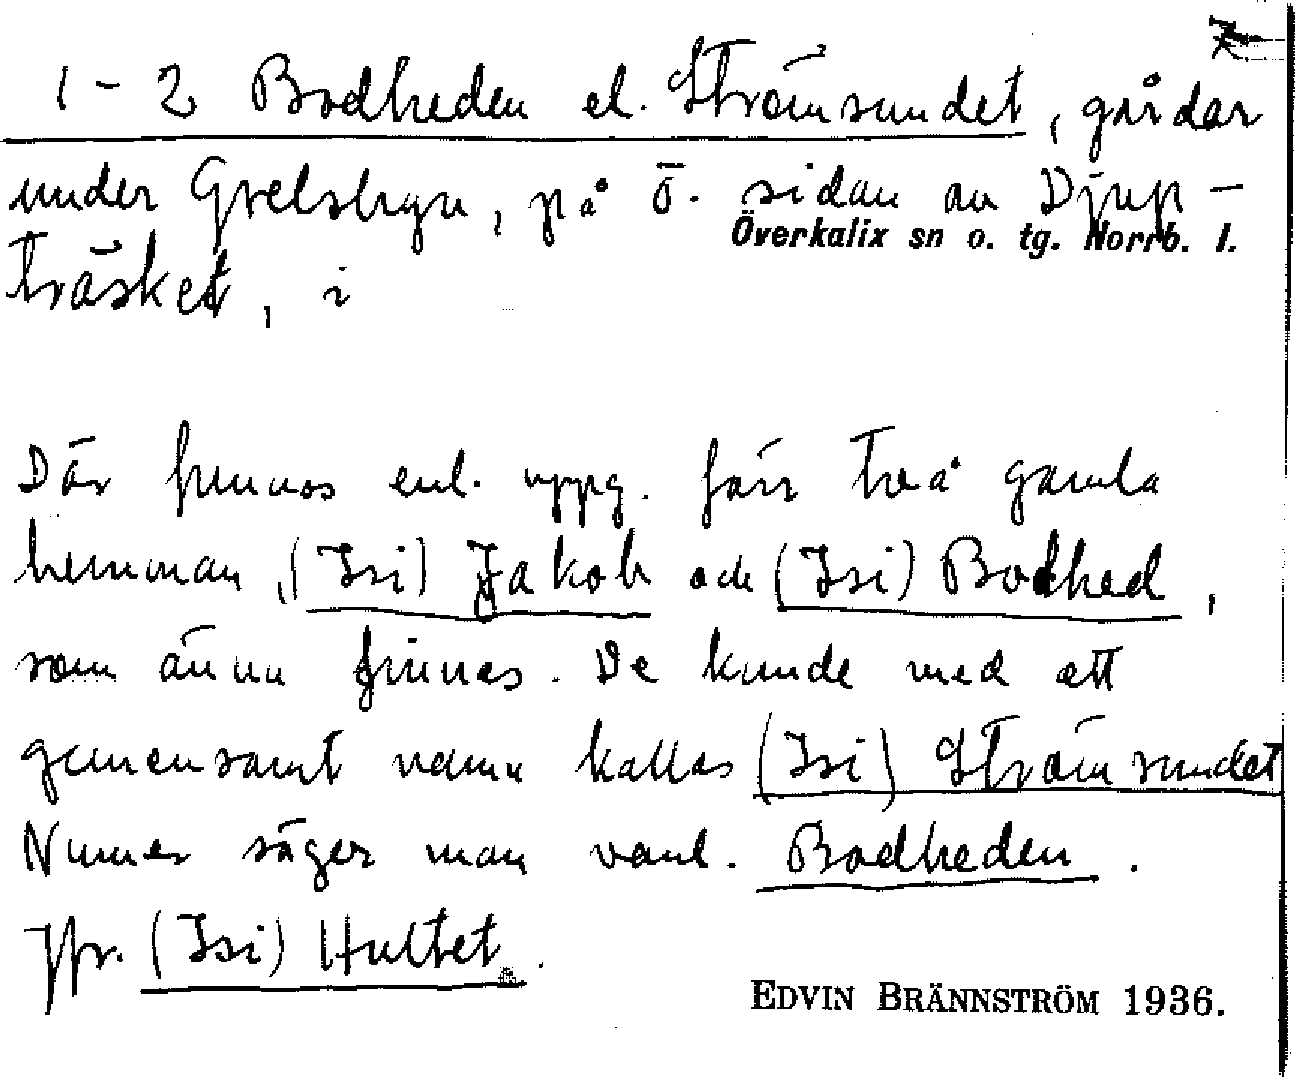 1-2 Bodheden el. Strömsundet, gårdar
under Grelsbyn, på ö. sidan av Djup-
Överkalix sn o. tg. Norrb. l.
träsket, i
Där funnos enl. uppg. förr två gamla
hemman, (Isi) Jakob och (Isi) Bodhed,
som ännu finnas. De kunde med ett
gemensamt namn kallas (Isi) Strömsundet
Numer säger man vanl. Bodheden.
Jfr. (Isi) Hultet.
EDVIN BRÄNNSTRÖM 1936.